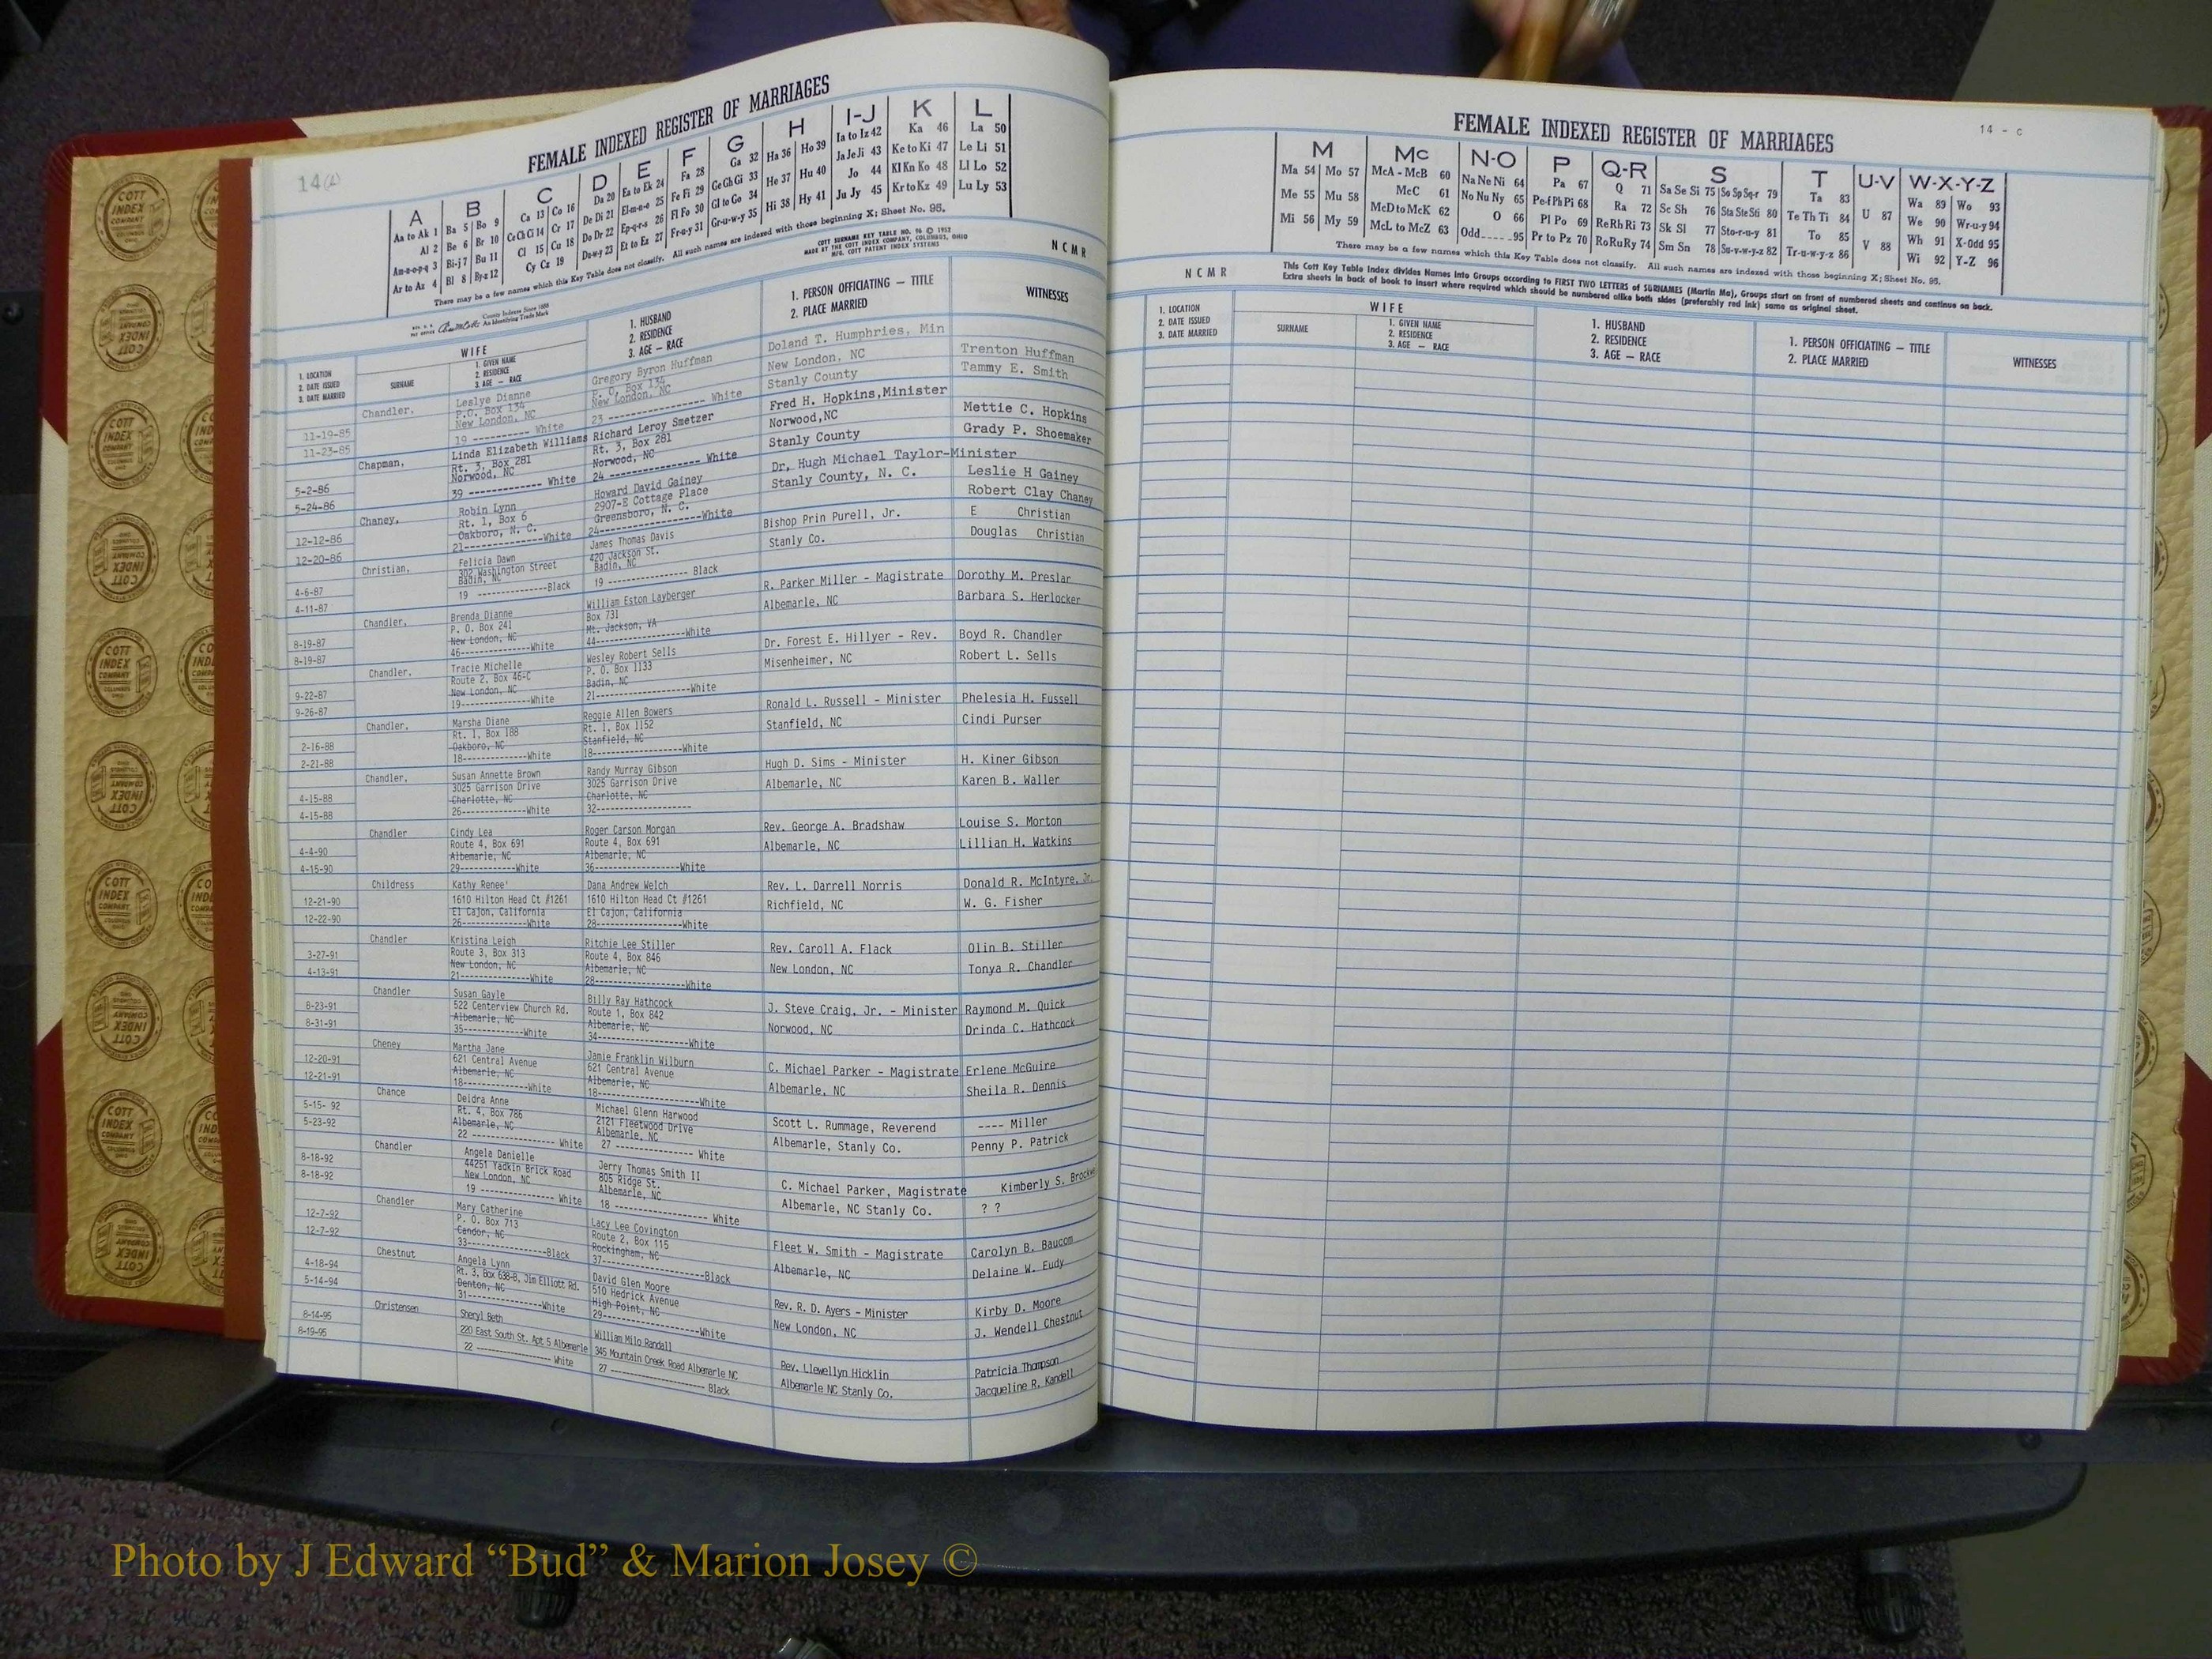 FEMALE INDEXED REGISTER OF MARRIAGES
A
Aa to Ak 1
Al 2
Am-n-o-p-q 3
Ar to Az 4
B
Ba 5 Bo 9
Be 6 Br 10
Bi-j 7 Bu 11
Bl 8 By-z 12
C
Ca 13 Co 16
Ce Ch Ci 14 Cr 17
Cl 15 Cu 18
Cy Cz 19
D
Da 20
De Di 21
Do Dr 22
Du-w-y 23
E
Ea to Ek 24
El-m-n-o 25
Ep-q-r-s 26
Et to Ez 27
F
Fa 28
Fe Fi 29
Fl Fo 30
Fr-u-y 31
G
Ga 32
Ge Gh Gi 33
Gl to Go 34
Gr-u-w-y 35
H
Ha 36 Ho 39
He 37 Hu 40
Hi 38 Hy 41
I-J
Ia to Iz 42
Ja Je Ji 43
Jo 44
Ju Jy 45
K
Ka 46
Ke to Ki 47
Kl Kn Ko 48
Kr to Kz 49
L
La 50
Le Li 51
Ll Lo 52
Lu Ly 53
There may be a few names which this Key Table does not classify. All such names are indexed with those beginning X; Sheet No. 95.
COTT SURNAME KEY TABLE NO. 96 © 1952
MADE BY THE COTT INDEX COMPANY, COLUMBUS, OHIO
MFG. COTT PATENT INDEX SYSTEMS
County Indexes Since 1888
An Identifying Trade Mark
NCMR
1. LOCATION
2. DATE ISSUED
3. DATE MARRIED
WIFE
SURNAME
1. GIVEN NAME
2. RESIDENCE
3. AGE — RACE
1. HUSBAND
2. RESIDENCE
3. AGE — RACE
1. PERSON OFFICIATING — TITLE
2. PLACE MARRIED
WITNESSES
11-19-85
11-23-85
Chandler,
Leslye Dianne
P.O. Box 134
New London, NC
19 ---------- White
Gregory Byron Huffman
P. O. Box 134
New London, NC
23 -------------- White
Doland T. Humphries, Min
New London, NC
Stanly County
Trenton Huffman
Tammy E. Smith
5-2-86
5-24-86
Chapman,
Linda Elizabeth Williams
Rt. 3, Box 281
Norwood, NC
39 ------------ White
Richard Leroy Smetzer
Rt. 3, Box 281
Norwood, NC
24 -------------- White
Fred H. Hopkins,Minister
Norwood,NC
Stanly County
Mettie C. Hopkins
Grady P. Shoemaker
12-12-86
12-20-86
Chaney,
Robin Lynn
Rt. 1, Box 6
Oakboro, N. C.
21--------------White
Howard David Gainey
2907-E Cottage Place
Greensboro, N. C.
24--------------White
Dr. Hugh Michael Taylor-Minister
Stanly County, N. C.
Leslie H Gainey
Robert Clay Chaney
4-6-87
4-11-87
Christian,
Felicia Dawn
302 Washington Street
Badin, NC
19 --------------Black
James Thomas Davis
420 Jackson St.
Badin, NC
19 --------------- Black
Bishop Prin Purell, Jr.
Stanly Co.
E Christian
Douglas Christian
8-19-87
8-19-87
Chandler,
Brenda Dianne
P. O. Box 241
New London, NC
46--------------White
William Eston Layberger
Box 731
Mt. Jackson, VA
44---------------White
R. Parker Miller - Magistrate
Albemarle, NC
Dorothy M. Preslar
Barbara S. Herlocker
9-22-87
9-26-87
Chandler,
Tracie Michelle
Route 2, Box 46-C
New London, NC
19--------------White
Wesley Robert Sells
P. O. Box 1133
Badin, NC
21----------------White
Dr. Forest E. Hillyer - Rev.
Misenheimer, NC
Boyd R. Chandler
Robert L. Sells
2-16-88
2-21-88
Chandler,
Marsha Diane
Rt. 1, Box 188
Oakboro, NC
18--------------White
Reggie Allen Bowers
Rt. 1, Box 1152
Stanfield, NC
18---------------White
Ronald L. Russell - Minister
Stanfield, NC
Phelesia H. Fussell
Cindi Purser
4-15-88
4-15-88
Chandler,
Susan Annette Brown
3025 Garrison Drive
Charlotte, NC
26------------White
Randy Murray Gibson
3025 Garrison Drive
Charlotte, NC
32----------------
Hugh D. Sims - Minister
Albemarle, NC
H. Kiner Gibson
Karen B. Waller
4-4-90
4-15-90
Chandler
Cindy Lea
Route 4, Box 691
Albemarle, NC
29-----------White
Roger Carson Morgan
Route 4, Box 691
Albemarle, NC
36---------------White
Rev. George A. Bradshaw
Albemarle, NC
Louise S. Morton
Lillian H. Watkins
12-21-90
12-22-90
Childress
Kathy Renee'
1610 Hilton Head Ct #1261
El Cajon, California
26-------------White
Dana Andrew Welch
1610 Hilton Head Ct #1261
El Cajon, California
28---------------White
Rev. L. Darrell Norris
Richfield, NC
Donald R. McIntyre, Jr.
W. G. Fisher
3-27-91
4-13-91
Chandler
Kristina Leigh
Route 3, Box 313
New London, NC
21--------------White
Ritchie Lee Stiller
Route 4, Box 846
Albemarle, NC
28---------------White
Rev. Caroll A. Flack
New London, NC
Olin B. Stiller
Tonya R. Chandler
8-23-91
8-31-91
Chandler
Susan Gayle
522 Centerview Church Rd.
Albemarle, NC
35------------White
Billy Ray Hathcock
Route 1, Box 842
Albemarle, NC
34----------------White
J. Steve Craig, Jr. - Minister
Norwood, NC
Raymond M. Quick
Drinda C. Hathcock
12-20-91
12-21-91
Cheney
Martha Jane
621 Central Avenue
Albemarle, NC
18-------------White
Jamie Franklin Wilburn
621 Central Avenue
Albemarle, NC
18-----------------White
C. Michael Parker - Magistrate
Albemarle, NC
Erlene McGuire
Sheila R. Dennis
5-15- 92
5-23-92
Chance
Deidra Anne
Rt. 4, Box 786
Albemarle, NC
22 ------------------ White
Michael Glenn Harwood
2121 Fleetwood Drive
Albemarle, NC
27 ------------- White
Scott L. Rummage, Reverend
Albemarle, Stanly Co.
---- Miller
Penny P. Patrick
8-18-92
8-18-92
Chandler
Angela Danielle
44251 Yadkin Brick Road
New London, NC
19 ---------------- White
Jerry Thomas Smith II
805 Ridge St.
Albemarle, NC
18 --------------- White
C. Michael Parker, Magistrate
Albemarle, NC Stanly Co.
Kimberly S.
? ?
12-7-92
12-7-92
Chandler
Mary Catherine
P. O. Box 713
Candor, NC
33--------------Black
Lacy Lee Covington
Route 2, Box 115
Rockingham, NC
37-----------------Black
Fleet W. Smith - Magistrate
Albemarle, NC
Carolyn B. Baucom
Delaine W. Eudy
4-18-94
5-14-94
Chestnut
Angela Lynn
Rt. 3, Box 638-B, Jim Elliott Rd.
Denton, NC
31-------------White
David Glen Moore
510 Hedrick Avenue
High Point, NC
29-----------------White
Rev. R. D. Ayers - Minister
New London, NC
Kirby D. Moore
J. Wendell Chestnut
8-14-95
8-19-95
Christensen
Sheryl Beth
220 East South St. Apt 5 Albemarle
22 ---------------- White
William Milo Randall
345 Mountain Creek Road Albemarle NC
27 ------------------- Black
Rev. Llewellyn Hicklin
Albemarle NC Stanly Co.
Patricia Thompson
Jacqueline R. Kandell
14 - C
FEMALE INDEXED REGISTER OF MARRIAGES
M
Ma 54 Mo 57
Me 55 Mu 58
Mi 56 My 59
Mc
McA - McB 60
McC 61
McD to McK 62
McL to McZ 63
N-O
Na Ne Ni 64
No Nu Ny 65
O 66
Odd 95
P
Pa 67
Pe-f Ph Pi 68
Pl Po 69
Pr to Pz 70
Q-R
Q 71
Ra 72
Re Rh Ri 73
Ro Ru Ry 74
S
Sa Se Si 75 So Sp Sq-r 79
Sc Sh 76 Sta Ste Sti 80
Sk Sl 77 Sto-r-u-y 81
Sm Sn 78 Su-v-w-y-z 82
T
Ta 83
Te Th Ti 84
To 85
Tr-u-w-y-z 86
U-V
U 87
V 88
W-X-Y-Z
Wa 89 Wo 93
We 90 Wr-u-y 94
Wh 91 X-Odd 95
Wi 92 Y-Z 96
There may be a few names which this Key Table does not classify. All such names are indexed with those beginning X; Sheet No. 95.
NCMR
This Cott Key Table Index divides Names into Groups according to FIRST TWO LETTERS of SURNAMES (Martin Ma), Groups start on front of numbered sheets and continue on back.
Extra sheets in back of book to insert where required which should be numbered alike both sides (preferably red ink) same as original sheet.
1. LOCATION
2. DATE ISSUED
3. DATE MARRIED
WIFE
SURNAME
1. GIVEN NAME
2. RESIDENCE
3. AGE — RACE
1. HUSBAND
2. RESIDENCE
3. AGE — RACE
1. PERSON OFFICIATING — TITLE
2. PLACE MARRIED
WITNESSES
COTT
INDEX
COMPANY
Photo by J Edward “Bud” & Marion Josey ©